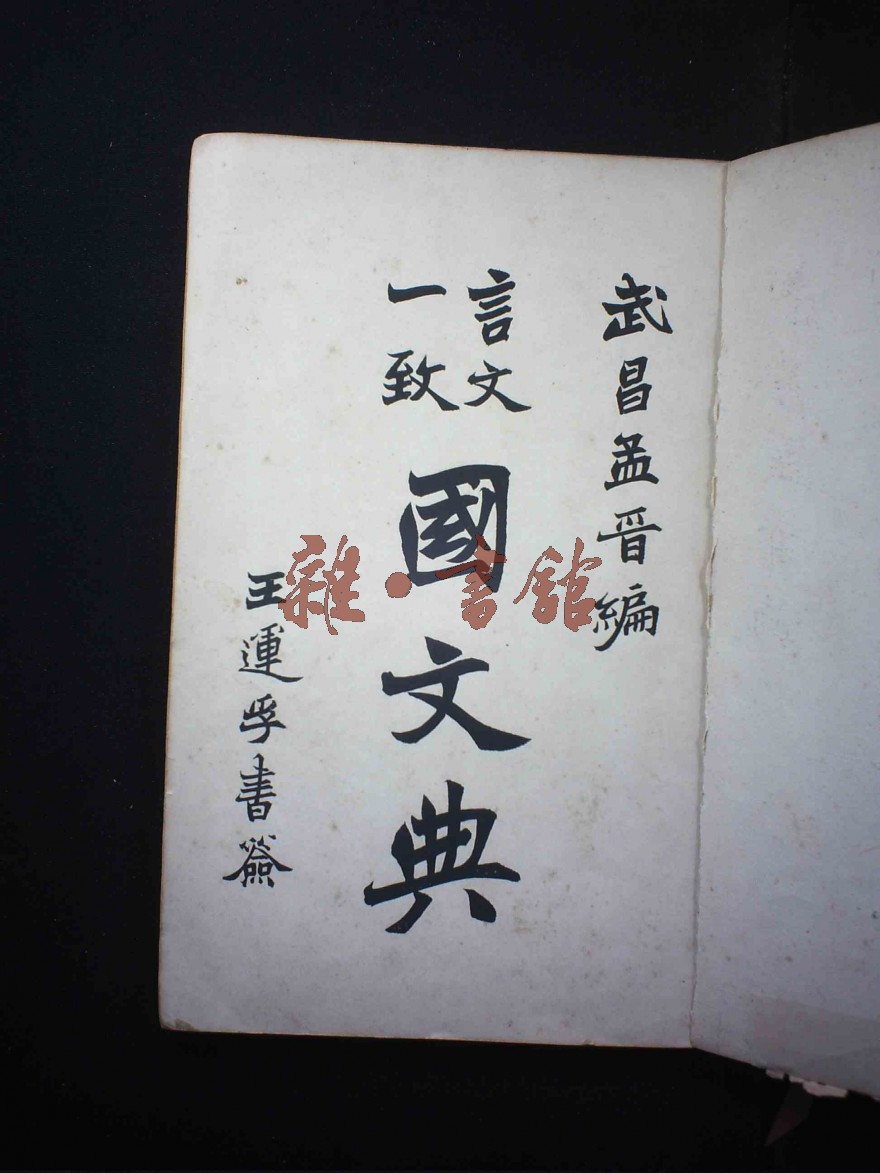 武昌孟晉編
言文
一致
國文典
王運孚書簽
雜·書館